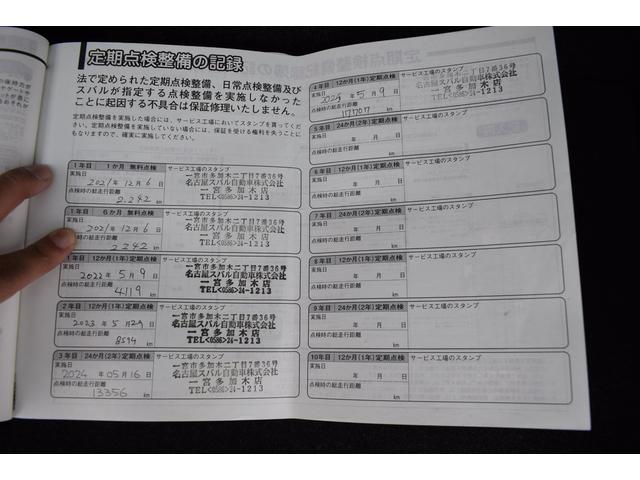 定期点検整備の記録
法で定められた定期点検整備、日常点検整備及び
スバルが指定する点検整備を実施しなかった
ことに起因する不具合は保証修理いたしません。
定期点検整備を実施した場合には、サービス工場においてスタンプを貰ってくだ
さい。定期点検整備を実施していない場合には、保証を受ける権利を失うことに
もなりますので、確実に実施してください。
1年目 1か月 無料点検 サービス工場のスタンプ
実施日
2021年12月6日
点検時の総走行距離
2,242 km
一宮市多加木二丁目7番36号
名古屋スバル自動車株式会社
一宮多加木店
TEL<0586>24-1213
1年目 6か月 無料点検 サービス工場のスタンプ
実施日
2021年12月6日
点検時の総走行距離
2242 km
一宮市多加木二丁目7番36号
名古屋スバル自動車株式会社
一宮多加木店
TEL<0586>24-1213
1年目 12か月(1年)定期点検 サービス工場のスタンプ
実施日
2022年5月9日
点検時の総走行距離
4119 km
一宮市多加木二丁目7番36号
名古屋スバル自動車株式会社
一宮多加木店
TEL<0586>24-1213
2年目 12か月(1年)定期点検 サービス工場のスタンプ
実施日
2023年5月29日
点検時の総走行距離
km
一宮市多加木二丁目7番36号
名古屋スバル自動車株式会社
一宮多加木店
TEL<0586>24-1213
3年目 24か月(2年)定期点検 サービス工場のスタンプ
実施日
2024年05月16日
点検時の総走行距離
13356 km
一宮市多加木二丁目7番36号
名古屋スバル自動車株式会社
一宮多加木店
TEL<0586>24-1213
4年目 12か月(1年)定期点検 サービス工場のスタンプ
実施日
2025年5月9日
点検時の総走行距離
km
一宮市多加木二丁目7番36号
名古屋スバル自動車株式会社
一宮多加木店
TEL<0586>24-1213
5年目 24か月(2年)定期点検 サービス工場のスタンプ
実施日
年 月 日
点検時の総走行距離
km
6年目 12か月(1年)定期点検 サービス工場のスタンプ
実施日
年 月 日
点検時の総走行距離
km
7年目 24か月(2年)定期点検 サービス工場のスタンプ
実施日
年 月 日
点検時の総走行距離
km
8年目 12か月(1年)定期点検 サービス工場のスタンプ
実施日
年 月 日
点検時の総走行距離
km
9年目 24か月(2年)定期点検 サービス工場のスタンプ
実施日
年 月 日
点検時の総走行距離
km
10年目 12か月(1年)定期点検 サービス工場のスタンプ
実施日
年 月 日
点検時の総走行距離
km